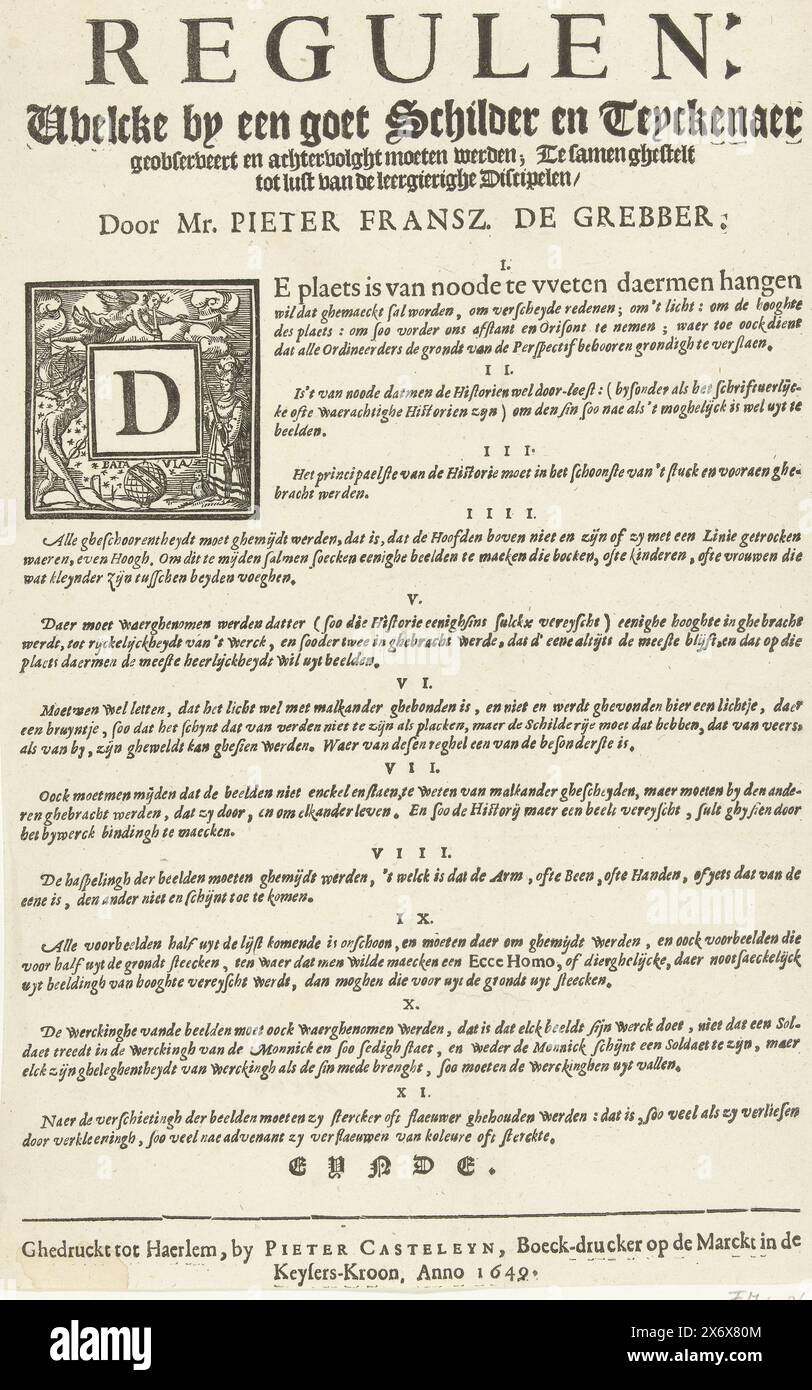 REGULEN:
Welcke by een goet Schilder en Teyckenaer
geobserveert en achtervolght moeten werden; Te samen ghestelt
tot lust van de leergierighe Discipelen/
Door Mr. PIETER FRANSZ. DE GREBBER.
I.
DE plaets is van noode te vveten daermen hangen
wil dat ghemaeckt sal worden, om verscheyde redenen; om 't licht: om de hooghte
des plaets: om soo vorder ons afstant en Orisont te nemen; waer toe oock dient
dat alle Ordineerders de grondt van de Perspectif behooren grondigh te verstaen.
BATAVIA
II.
Is't van noode datmen de Historien wel door-leest: (bysonder als het schriftuerlijc-
ke ofte waerachtighe Historien zyn) om den sin soo nae als 't moghelijck is wel uyt te
beelden.
III.
Het principaelste van de Historie moet in het schoonste van 't stuck en vooraen ghe-
bracht werden.
IIII.
Alle gheschoorentheydt moet ghemijdt werden, dat is, dat de Hoofden boven niet en zijn of zy met een Linie getrocken
waeren, even Hoogh. Om dit te mijden salmen soecken eenighe beelden te maeken die bocken, ofte kinderen, ofte vrouwen die
wat kleynder zijn tusschen beyden voeghen.
V.
Daer moet waerghenomen werden datter (soo die Historie eenighsins sulckx vereyscht) eenighe hooghte in ghebracht
werdt, tot rijckelijckheydt van 't werck, en sooder twee in ghebracht werde, dat d' eene altijts de meeste blijft, en dat op die
plaets daermen de meeste heerlijckheydt wil uyt beelden.
VI.
Moetmen wel letten, dat het licht wel met malkander ghebonden is, en niet en werdt ghevonden hier een lichtje, daer
een bruyntje, soo dat het schynt dat van verden niet te zijn als placken, maer de Schilderije moet dat hebben, dat van veers
als van by, zijn gheweldt kan ghesien werden. Waer van desen reghel een van de besonderste is.
VII.
Oock moetmen mijden dat de beelden niet enckel en staen, te weten van malkander ghescheyden, maer moeten by den ande-
ren ghebracht werden, dat zy door, en om elkander leven. En soo de Historij maer een beelt vereyscht, sult ghy sien door
het bywerck bindingh te maecken.
VIII.
De haspelingh der beelden moeten ghemijdt werden, 't welck is dat de Arm, ofte Been, ofte Handen, ofyets dat van de
eene is, den ander niet en schijnt toe te komen.
IX.
Alle voorbeelden half uyt de lijst komende is onschoon, en moeten daer om ghemijdt werden, en oock voorbeelden die
voor half uyt de grondt steecken, ten waer dat men wilde maecken een Ecce Homo, of dierghelijcke, daer nootsaeckelijck
uyt beeldingh van hooghte vereyscht werdt, dan moghen die voor uyt de grondt uyt steecken.
X.
De werckinghe vande beelden moet oock waerghenomen werden, dat is dat elck beeldt sijn werck doet, niet dat een Sol-
daet treedt in de werckingh van de Monnick en soo sedigh staet, en weder de Monnick schijnt een Soldaet te zijn, maer
elck zijn gheleghentheydt van werckingh als de sin mede brenght, soo moeten de werckinghen uyt vallen.
XI.
Naer de verschietingh der beelden moeten zy stercker oft flaeuwer ghehouden werden: dat is, soo veel als zy verliesen
door verkleeningh, soo veel nae advenant zy verflaeuwen van koleure oft sterckte.
EYNDE.
Ghedruckt tot Haerlem, by PIETER CASTELEYN, Boeck-drucker op de Marckt in de
Keysers-Kroon, Anno 1649.
alamy
Image ID: 2X6X80M
www.alamy.com